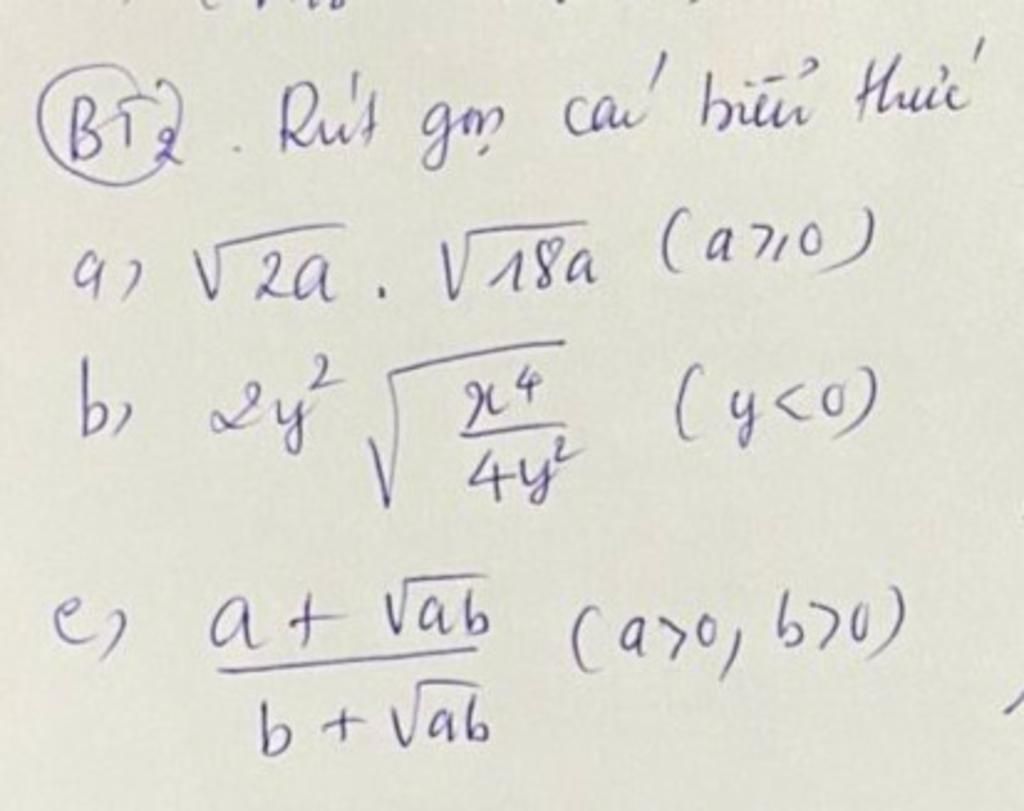 BT2. Rút gọn các biểu thức
a, √2a . √18a (a⩾0)
b, 2y² √(x⁴/4y²) (y<0)
c, (a + √ab)/(b + √ab) (a>0, b>0)